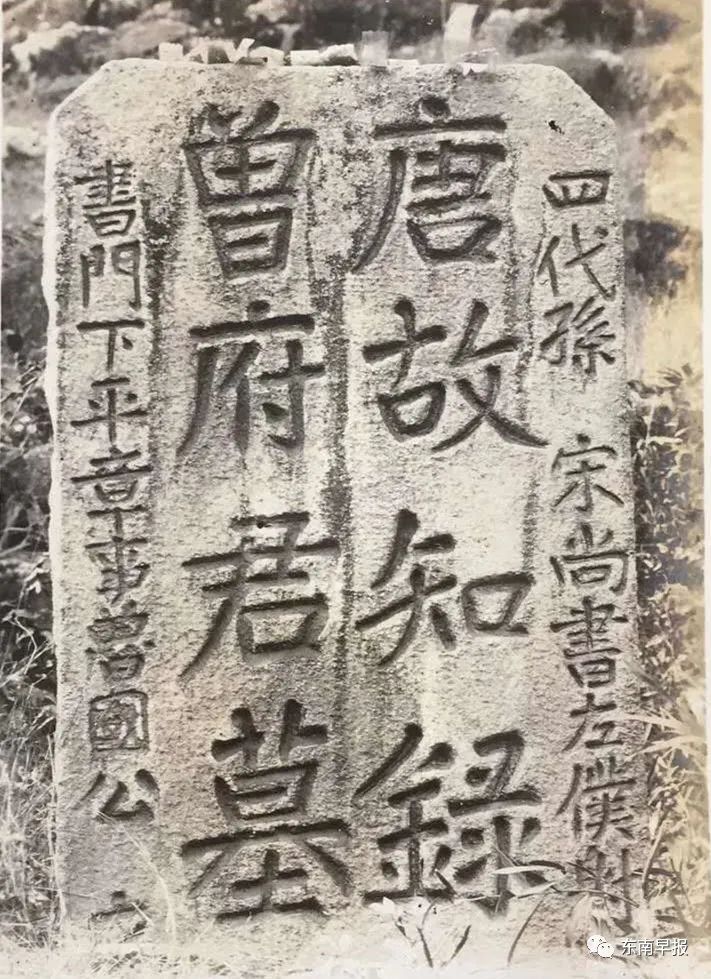 四代孫 宋尚書左僕射
唐故知録
曾府君墓
書門下平章事魯國公
东南早报